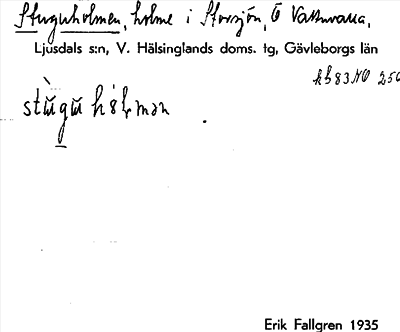 Stuguholmen, holme i Storsjön, Ö Vattuvalla,
Ljusdals s:n, V. Hälsinglands doms. tg, Gävleborgs län
83 NO 250
stùgu hólmən
Erik Fallgren 1935